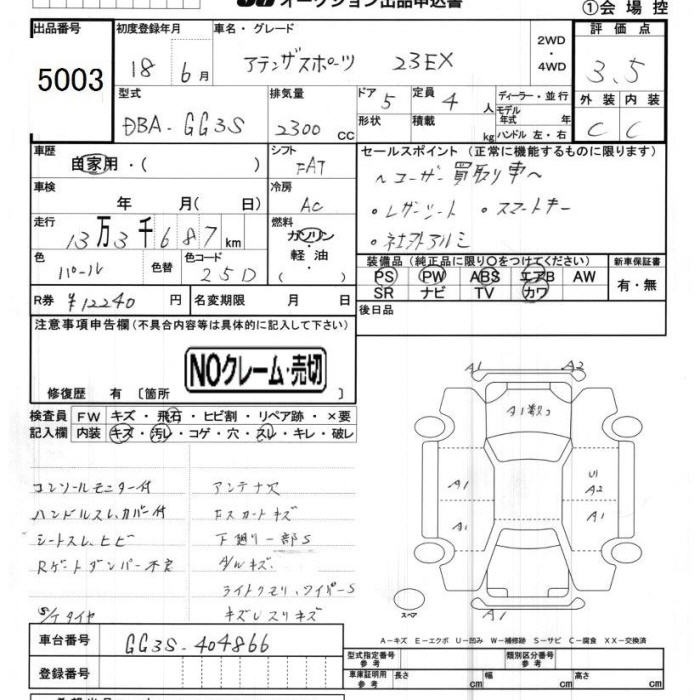 オークション出品申込書 ①会場控
出品番号 5003
初度登録年月 18 6月
車名・グレード アテンザスポーツ 23EX
2WD・4WD
評価点 3.5
型式 DBA-GG3S
排気量 2300 CC
ドア 5
形状
定員 4 人
積載 kg
ディーラー・並行
モデル年式 年
ハンドル 左・右
外装 C
内装 C
車歴 自家用・( )
シフト FAT
車検 年 月( 日)
冷房 AC
走行 13万3千687km
燃料 ガソリン・軽油・( )
色 パール
色替
色コード 25D
R券 ¥12240 円
名変期限 月 日
セールスポイント (正常に機能するものに限ります)
〜ユーザー買取り車〜
・レザーシート ・スマートキー
・社外アルミ
装備品(純正品に限り〇をつけてください)
PS PW ABS エアB AW
SR ナビ TV カワ
新車保証書 有・無
後日品
注意事項申告欄(不具合内容等は具体的に記入して下さい)
NOクレーム・売切
修復歴 有〔箇所 〕
検査員記入欄
FW キズ・飛石・ヒビ割・リペア跡・×要
内装 キズ・汚レ・コゲ・穴・スレ・キレ・破レ
コンソールモニター付 アンテナ穴
ハンドルスレ、カバー付 Fスカートキズ
シートスレ、ヒビ 下廻り一部S
Rゲートダンパー不良 A/Wキズ
ライトクモリ、ワイパーS
S/Tタイヤ キズレスリキズ
A1 A2
A1
A1 U1
A2
A1 A1
スペア A1
A-キズ E-エクボ U-凹み W-補修跡 S-サビ C-腐食 XX-交換済
車台番号 GG3S-404866
登録番号
型式指定番号 参考
類別区分番号 参考
車庫証明用 参考 長さ cm 幅 cm 高さ cm